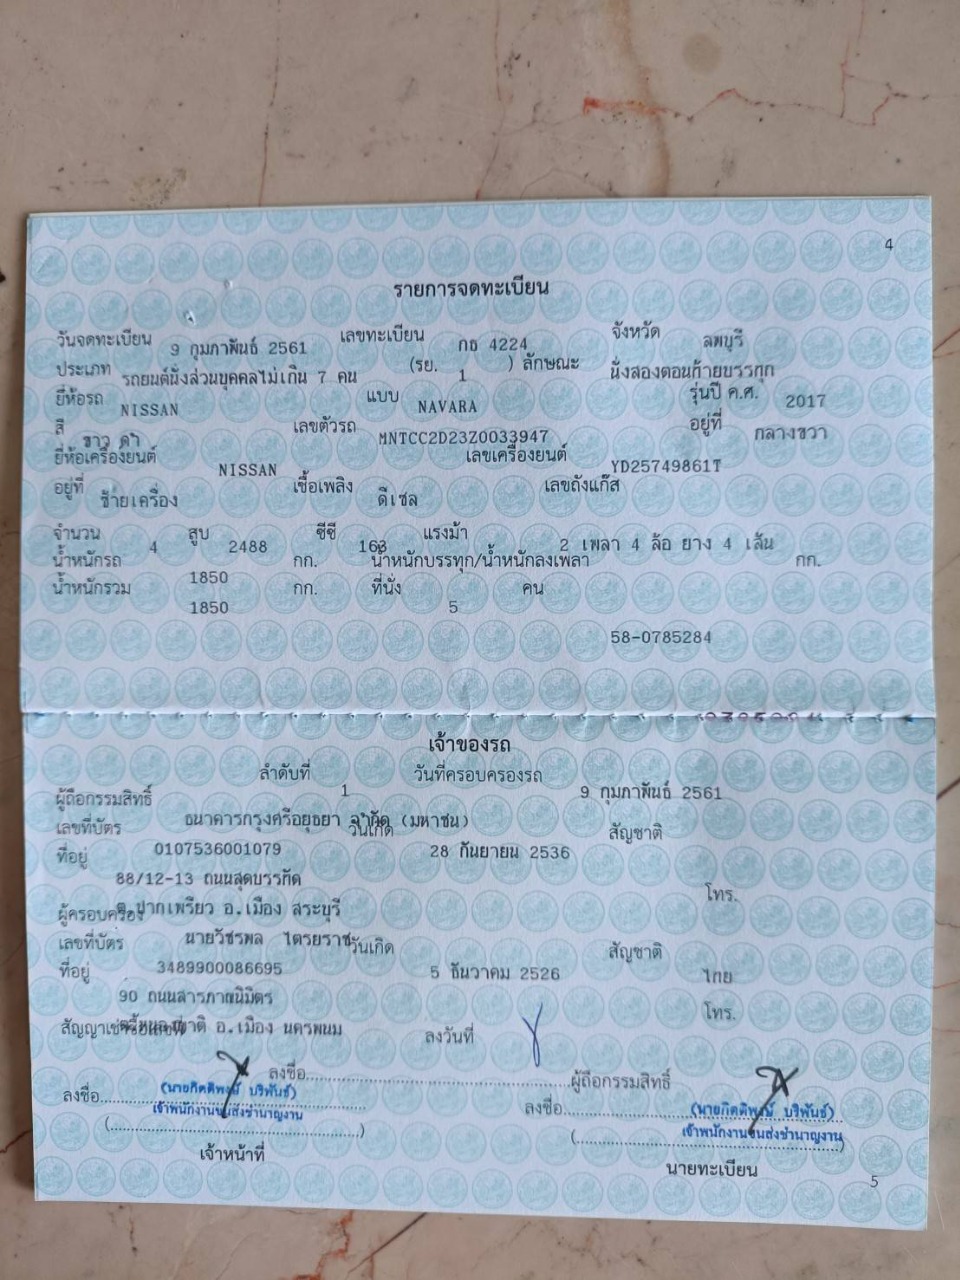 4
รายการจดทะเบียน
วันจดทะเบียน 9 กุมภาพันธ์ 2561 เลขทะเบียน กธ 4224 จังหวัด ลพบุรี
ประเภท รถยนต์นั่งส่วนบุคคลไม่เกิน 7 คน (รย. 1 ) ลักษณะ นั่งสองตอนท้ายบรรทุก
ยี่ห้อรถ NISSAN แบบ NAVARA รุ่นปี ค.ศ. 2017
สี ขาว ดำ เลขตัวรถ MNTCC2D23Z0033947 อยู่ที่ กลางขวา
ยี่ห้อเครื่องยนต์ NISSAN เลขเครื่องยนต์ YD25749861T
อยู่ที่ ซ้ายเครื่อง เชื้อเพลิง ดีเซล เลขถังแก๊ส
จำนวน 4 สูบ 2488 ซีซี 163 แรงม้า 2 เพลา 4 ล้อ ยาง 4 เส้น
น้ำหนักรถ 1850 กก. น้ำหนักบรรทุก/น้ำหนักลงเพลา กก.
น้ำหนักรวม 1850 กก. ที่นั่ง 5 คน
58-0785284
เจ้าของรถ
ลำดับที่ 1 วันที่ครอบครองรถ 9 กุมภาพันธ์ 2561
ผู้ถือกรรมสิทธิ์ ธนาคารกรุงศรีอยุธยา จำกัด (มหาชน)
เลขที่บัตร 0107536001079 วันเกิด 28 กันยายน 2536 สัญชาติ
ที่อยู่ 88/12-13 ถนนสุดบรรทัด โทร.
ต.ปากเพรียว อ.เมือง สระบุรี
ผู้ครอบครอง นายวัชรพล ไตรยราช
เลขที่บัตร 3489900086695 วันเกิด 5 ธันวาคม 2526 สัญชาติ ไทย
ที่อยู่ 90 ถนนสารภาณนิมิตร โทร.
อ.เมือง นครพนม
ลงวันที่
ลงชื่อ ผู้ถือกรรมสิทธิ์
ลงชื่อ (นายกิตติพงษ์ บริพันธ์) ลงชื่อ (นายกิตติพงษ์ บริพันธ์)
เจ้าพนักงานขนส่งชำนาญงาน เจ้าพนักงานขนส่งชำนาญงาน
เจ้าหน้าที่ นายทะเบียน
5